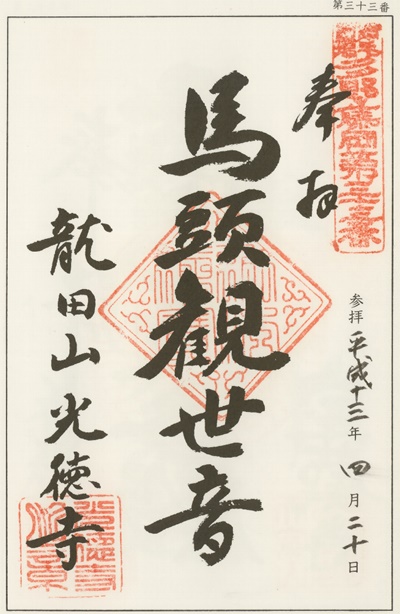 第三十三番
奉拝
参拝 平成十三年 四月二十日
馬頭観世音
龍田山光徳寺